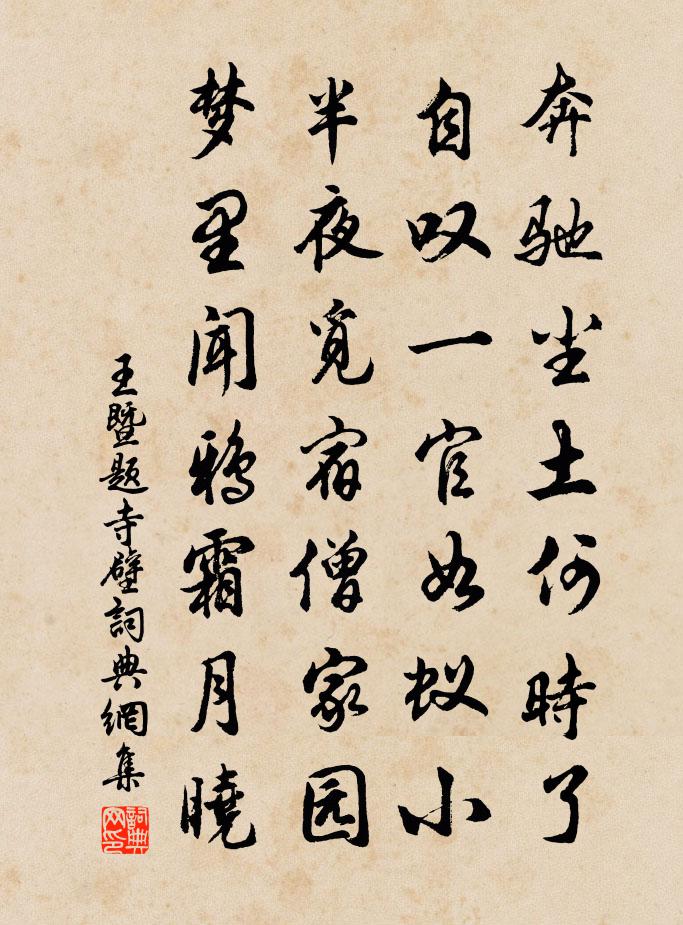 奔驰尘土何時了
自叹一官如蚁小
半夜觅宿僧家园
梦里闻鸦霜月曉
王暨题寺壁詞典網集
詞典网印